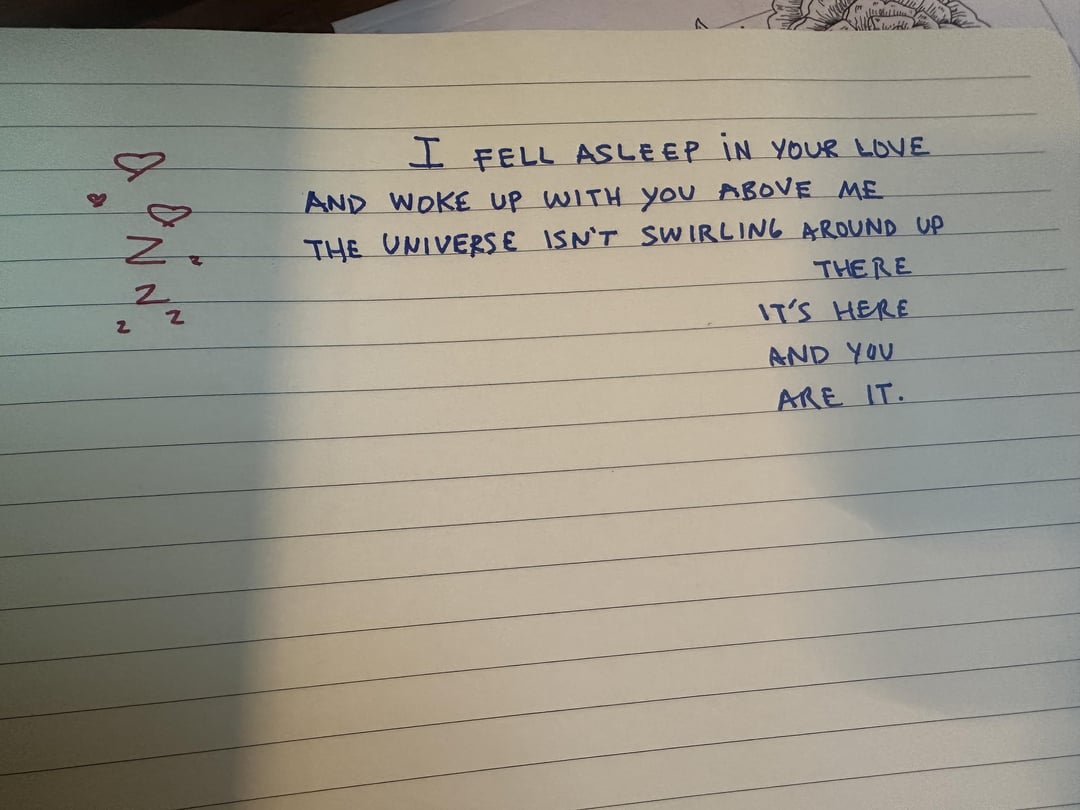 I FELL ASLEEP IN YOUR LOVE
AND WOKE UP WITH YOU ABOVE ME
THE UNIVERSE ISN'T SWIRLING AROUND UP
THERE
IT'S HERE
AND YOU
ARE IT.
Z z
Z
z z